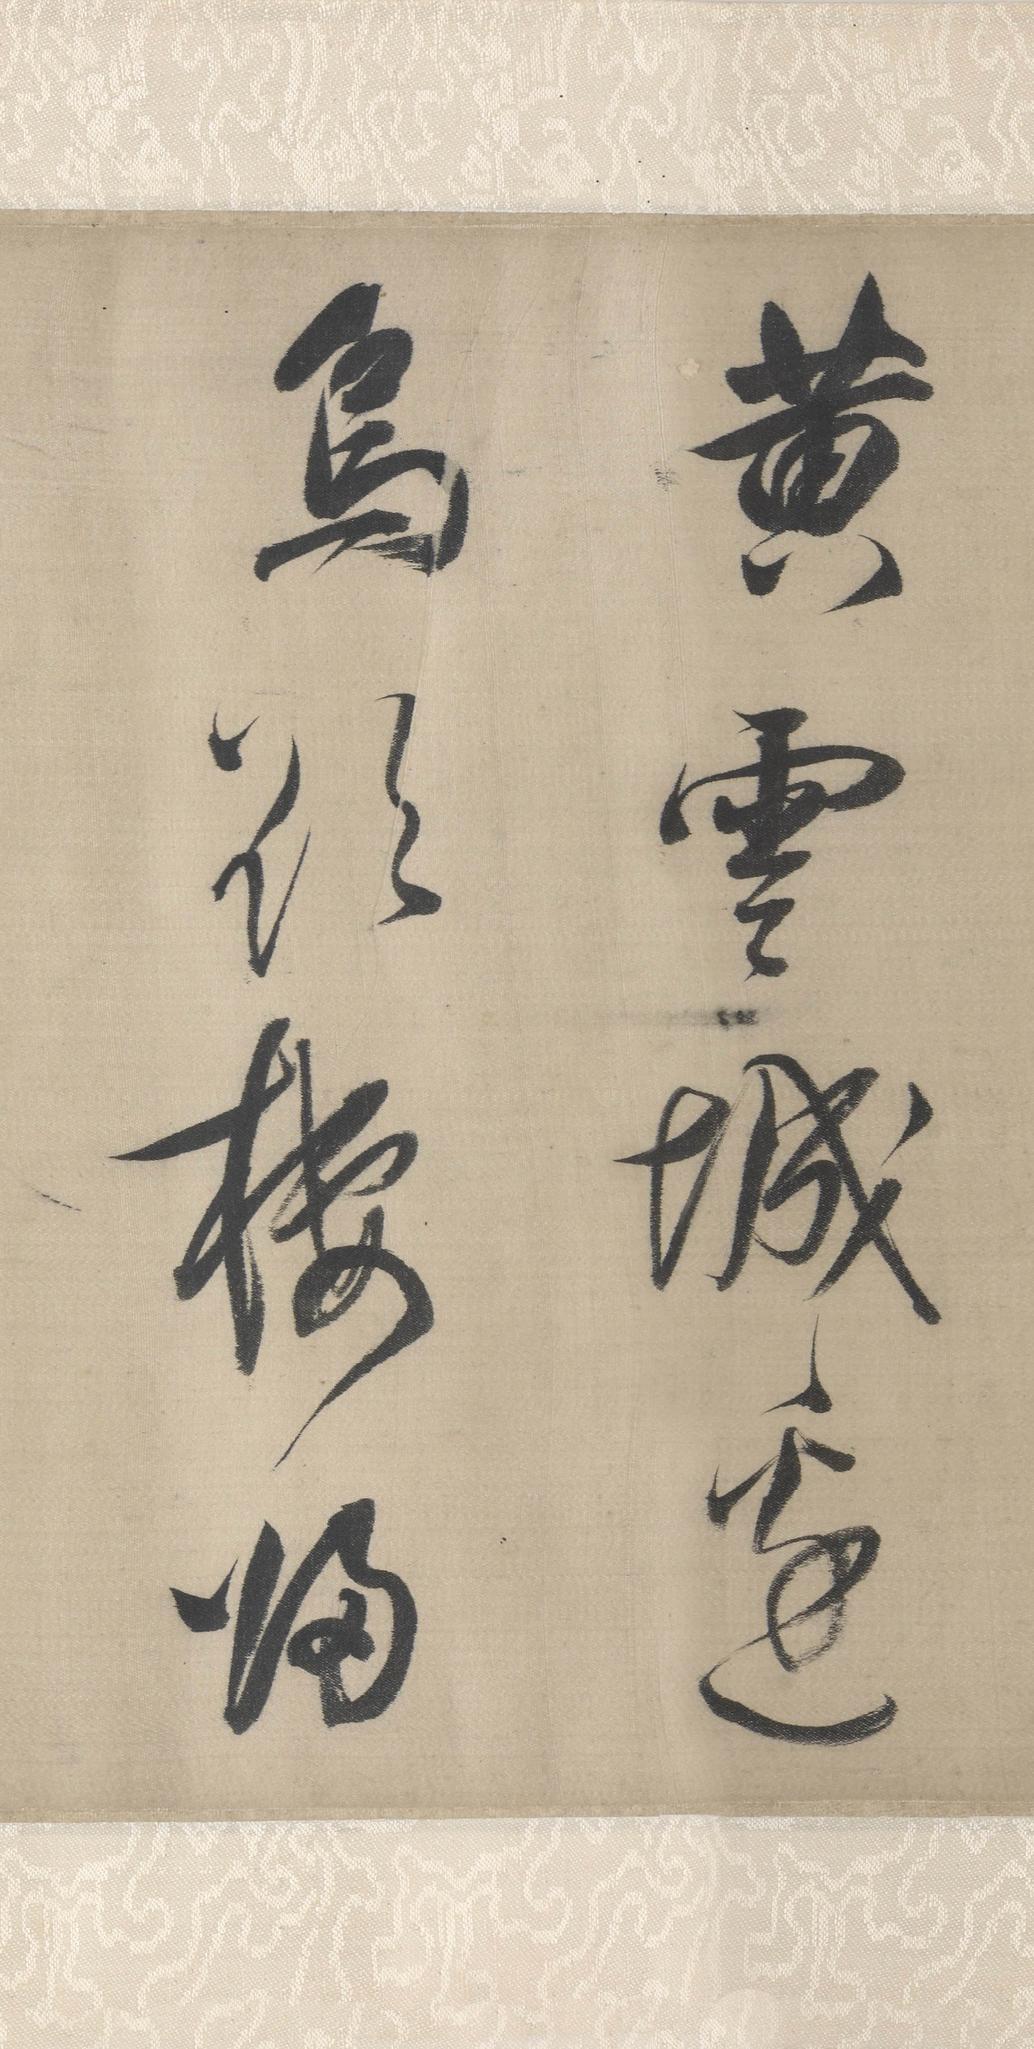 黃雲城邊
烏欲棲歸